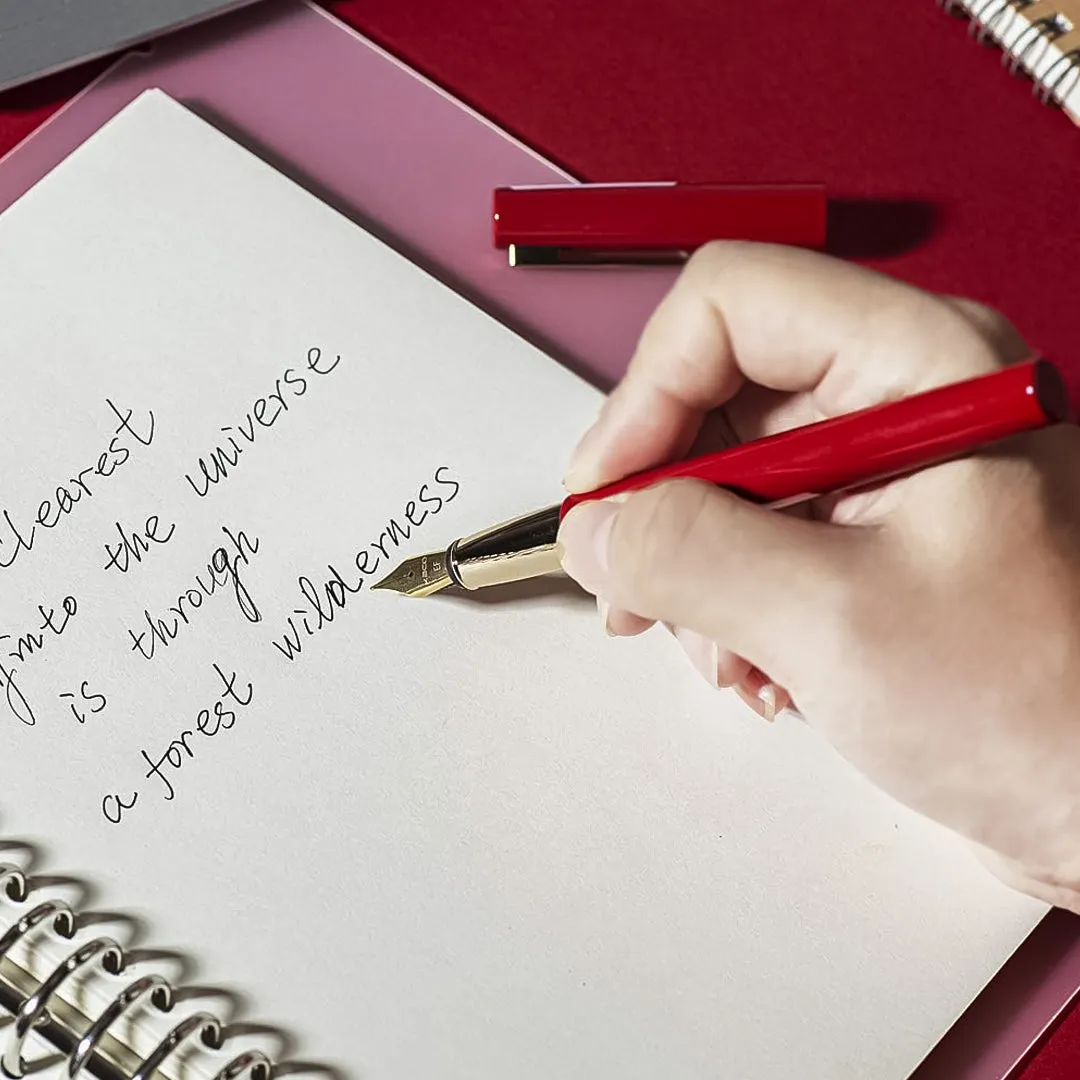 Clearest
into the universe
is through
a forest wilderness
KACO
EF